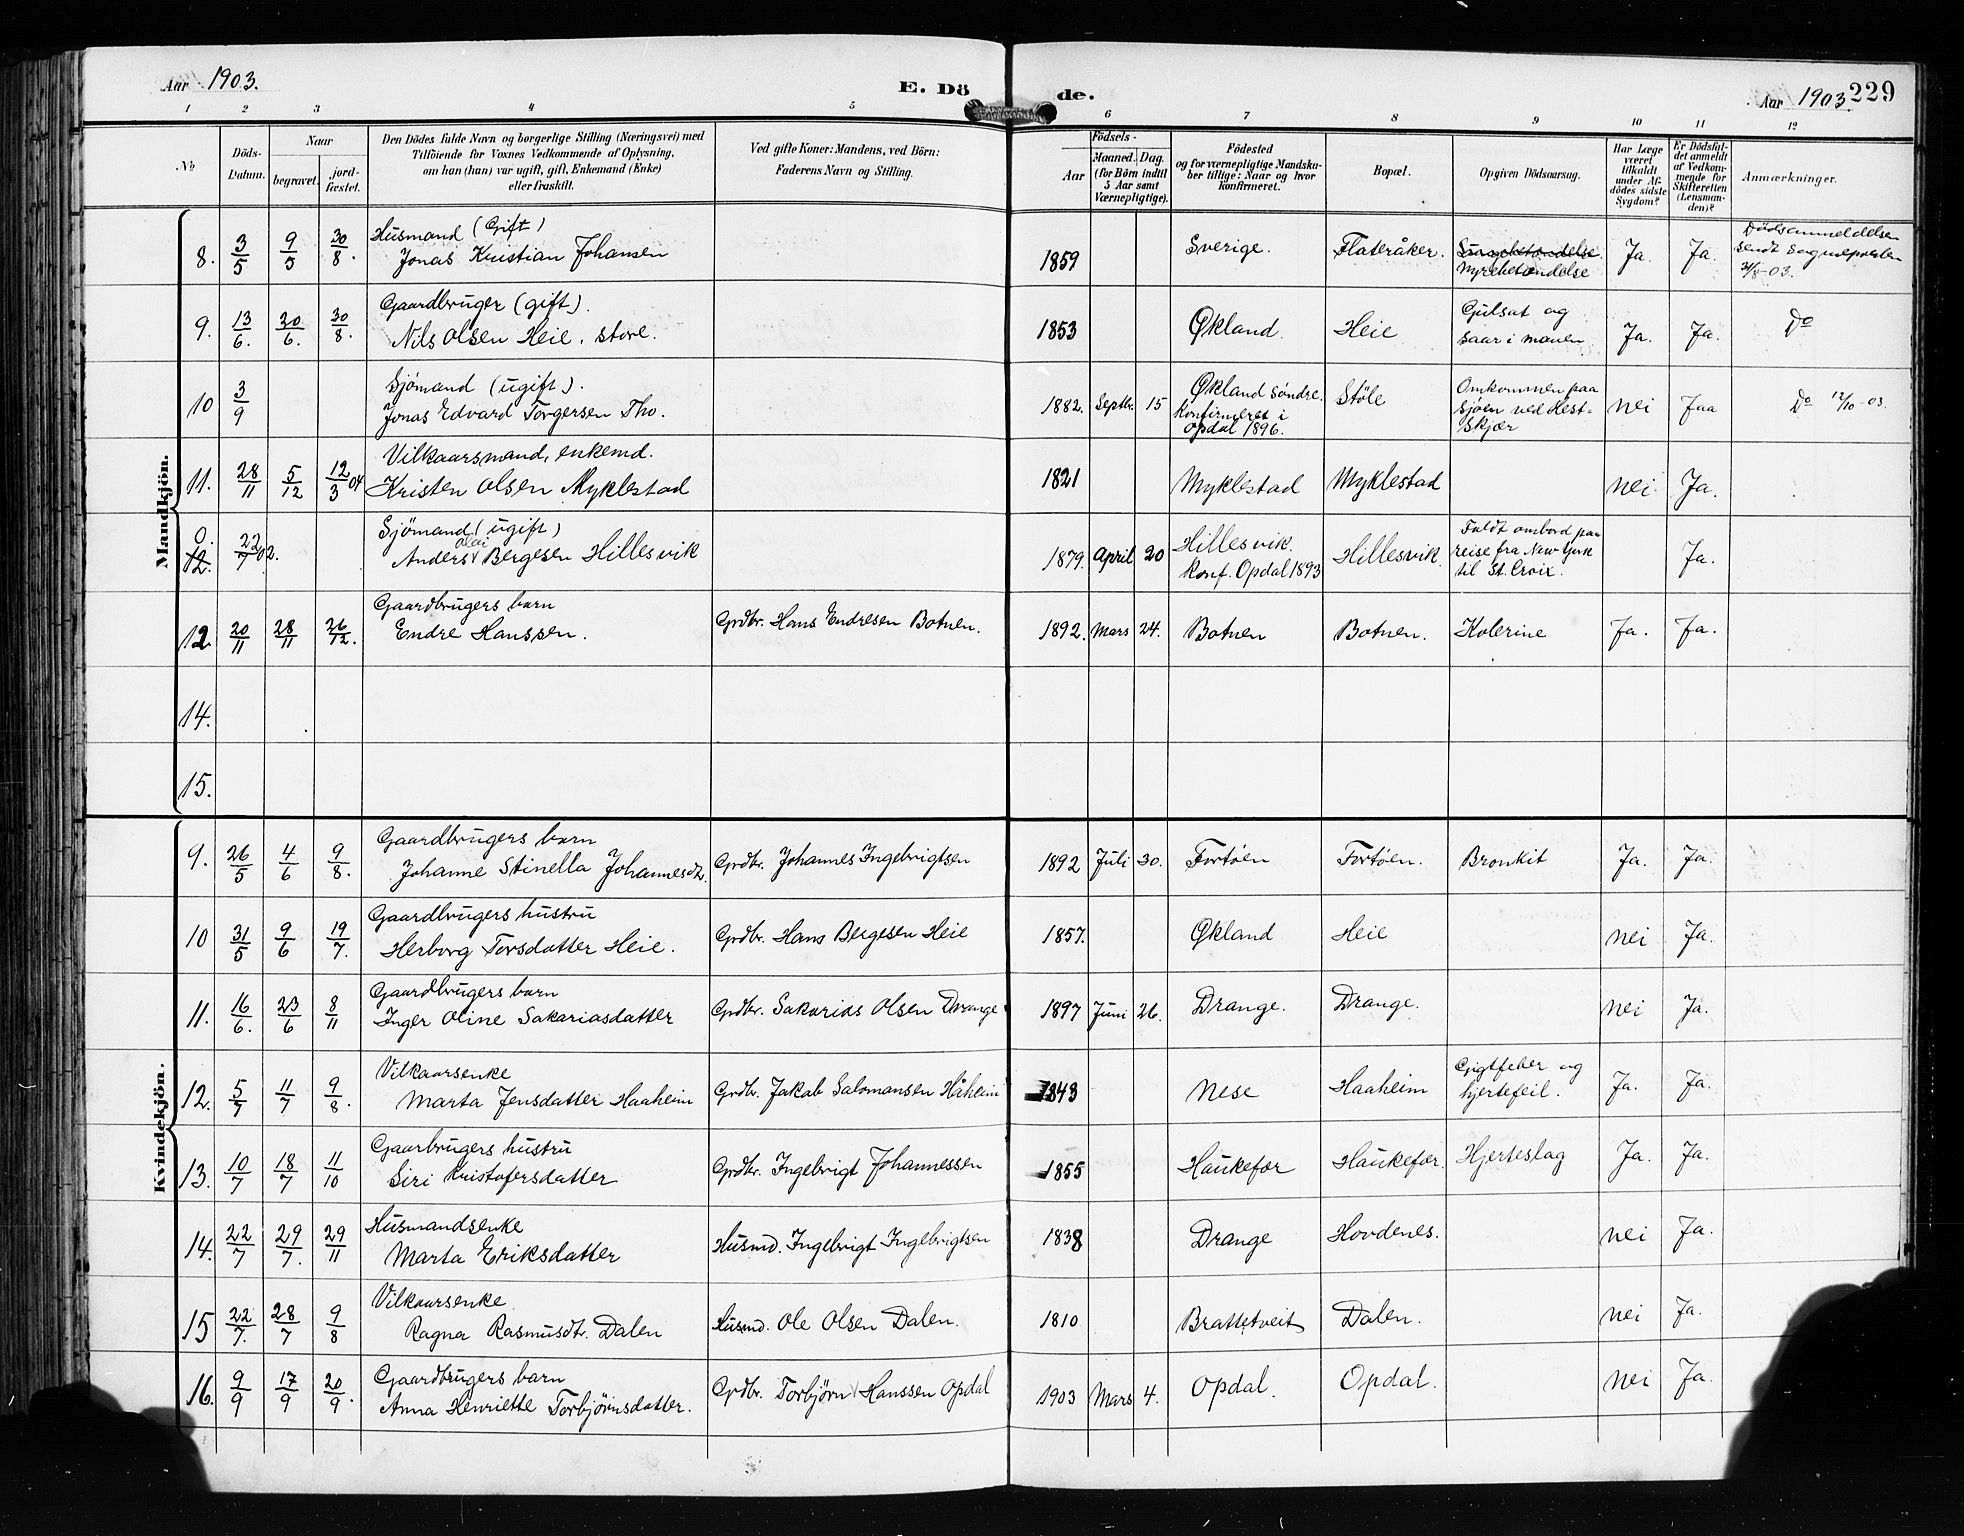 Aar 1903. E. Dö de. Aar 1903. 229
1 2 3 4 5 6 7 8 9 10 11 12
No
Döds-Datum.
Naar
begravet.
jord-fæstet.
Den Dödes fulde Navn og borgerlige Stilling (Næringsvei) med
Tilföiende for Voxnes Vedkommende af Oplysning,
om han (hun) var ugift, gift, Enkemand (Enke)
eller fraskilt.
Ved gifte Koner: Mandens, ved Börn:
Faderens Navn og Stilling.
Födsels-
Aar
Maaned. Dag.
(for Börn indtil
5 Aar samt
Værnepligtige).
Födested
og for værnepligtige Mandska-
ber tillige: Naar og hvor
konfirmeret.
Bopæl.
Opgiven Dödsaarsag.
Har Læge
været
tilkaldt
under Af-
dödes sidste
Sygdom?
Er Dödsfal-
det anmeldt
af Vedkom-
mende for
Skifteretten
(Lensman-
den)?
Anmærkninger.
Mandkjön.
8. 3/5 9/5 30/8. Husmand (Gift)
Jonas Kristian Johansen 1859 Sverige. Flateråker. Nyrebetændelse Ja. Ja. Dödsanmeldelsen
sendt Sognepresten
31/8-03.
9. 13/6. 20/6. 30/8. Gaardbruger (gift).
Nils Olsen Heie, store. 1853 Økland. Heie Gulsot og
saar i maven Ja. Ja. Do
10 3/9 Sjömand (ugift).
Jonas Edvard Torgersen Tho. 1882. Septbr. 15 Økland Söndre.
Konfirmeret i
Opdal 1896. Stöle Omkommen paa
Sjöen ved Hest-
skjær nei Jaa Do 12/10-03.
11. 28/11 5/12 12/3 04 Vilkaarsmand, enkemd.
Kristen Olsen Myklestad 1821 Myklestad Myklestad nei. Ja.
0.
12. 22/7 02. Sjömand (ugift)
Olai
Anders Bergesen Hillesvik 1879. April 20 Hillesvik.
Konf. Opdal 1893 Hillesvik. Faldt ombord paa
reise fra New York
til St. Croix. Ja.
12 20/11 28/11 26/12. Gaardbrugers barn
Endre Hanssen. Grdbr. Hans Endresen Botnen. 1892. Mars 24. Botnen Botnen. Kolerine Ja. Ja.
14.
15.
Kvindekjön.
9. 26/5 4/6 9/8. Gaardbrugers barn
Johanne Stinella Johannesdtr. Grdbr. Johannes Ingebrigtsen 1892 Juli 30. Fortöen Fortöen. Bronkit Ja. Ja.
10 31/5 9/6 19/7. Gaardbrugers hustru
Herborg Torsdatter Heie. Grdbr. Hans Bergesen Heie 1857. Økland Heie nei Ja.
11. 16/6. 23/6 8/11 Gaardbrugers barn
Inger Oline Sakariasdatter Grdbr. Sakarias Olsen Drange 1897 Juni 26. Drange. Drange. nei Ja.
12. 5/7 11/7 9/8. Vilkaarsenke
Marta Jensdatter Haaheim Grdbr. Jakob Salomansen Håheim 1843 Nese Haaheim Gigtfeber og
hjertefeil. Ja. Ja.
13. 10/7 18/7 11/10 Gaarbrugers hustru
Siri Kristofersdatter Grdbr. Ingebrigt Johannessen 1855 Haukefær Haukefær. Hjerteslag Ja. Ja.
14. 22/7 29/7. 29/11 Husmandsenke
Marta Eriksdatter Husmd. Ingebrigt Ingebrigtsen 1838 Drange Hovdenes. nei Ja.
15 22/7. 28/7 9/8 Vilkaarsenke
Ragna Rasmusdt. Dalen Husmd. Ole Olsen Dalen. 1810 Brattetveit Dalen. nei Ja.
16. 9/9 17/9 20/9. Gaardbrugers barn
Anna Henriette Torbjörnsdatter. Grdbr. Torbjörn Hanssen Opdal 1903 Mars 4. Opdal. Opdal. nei Ja.